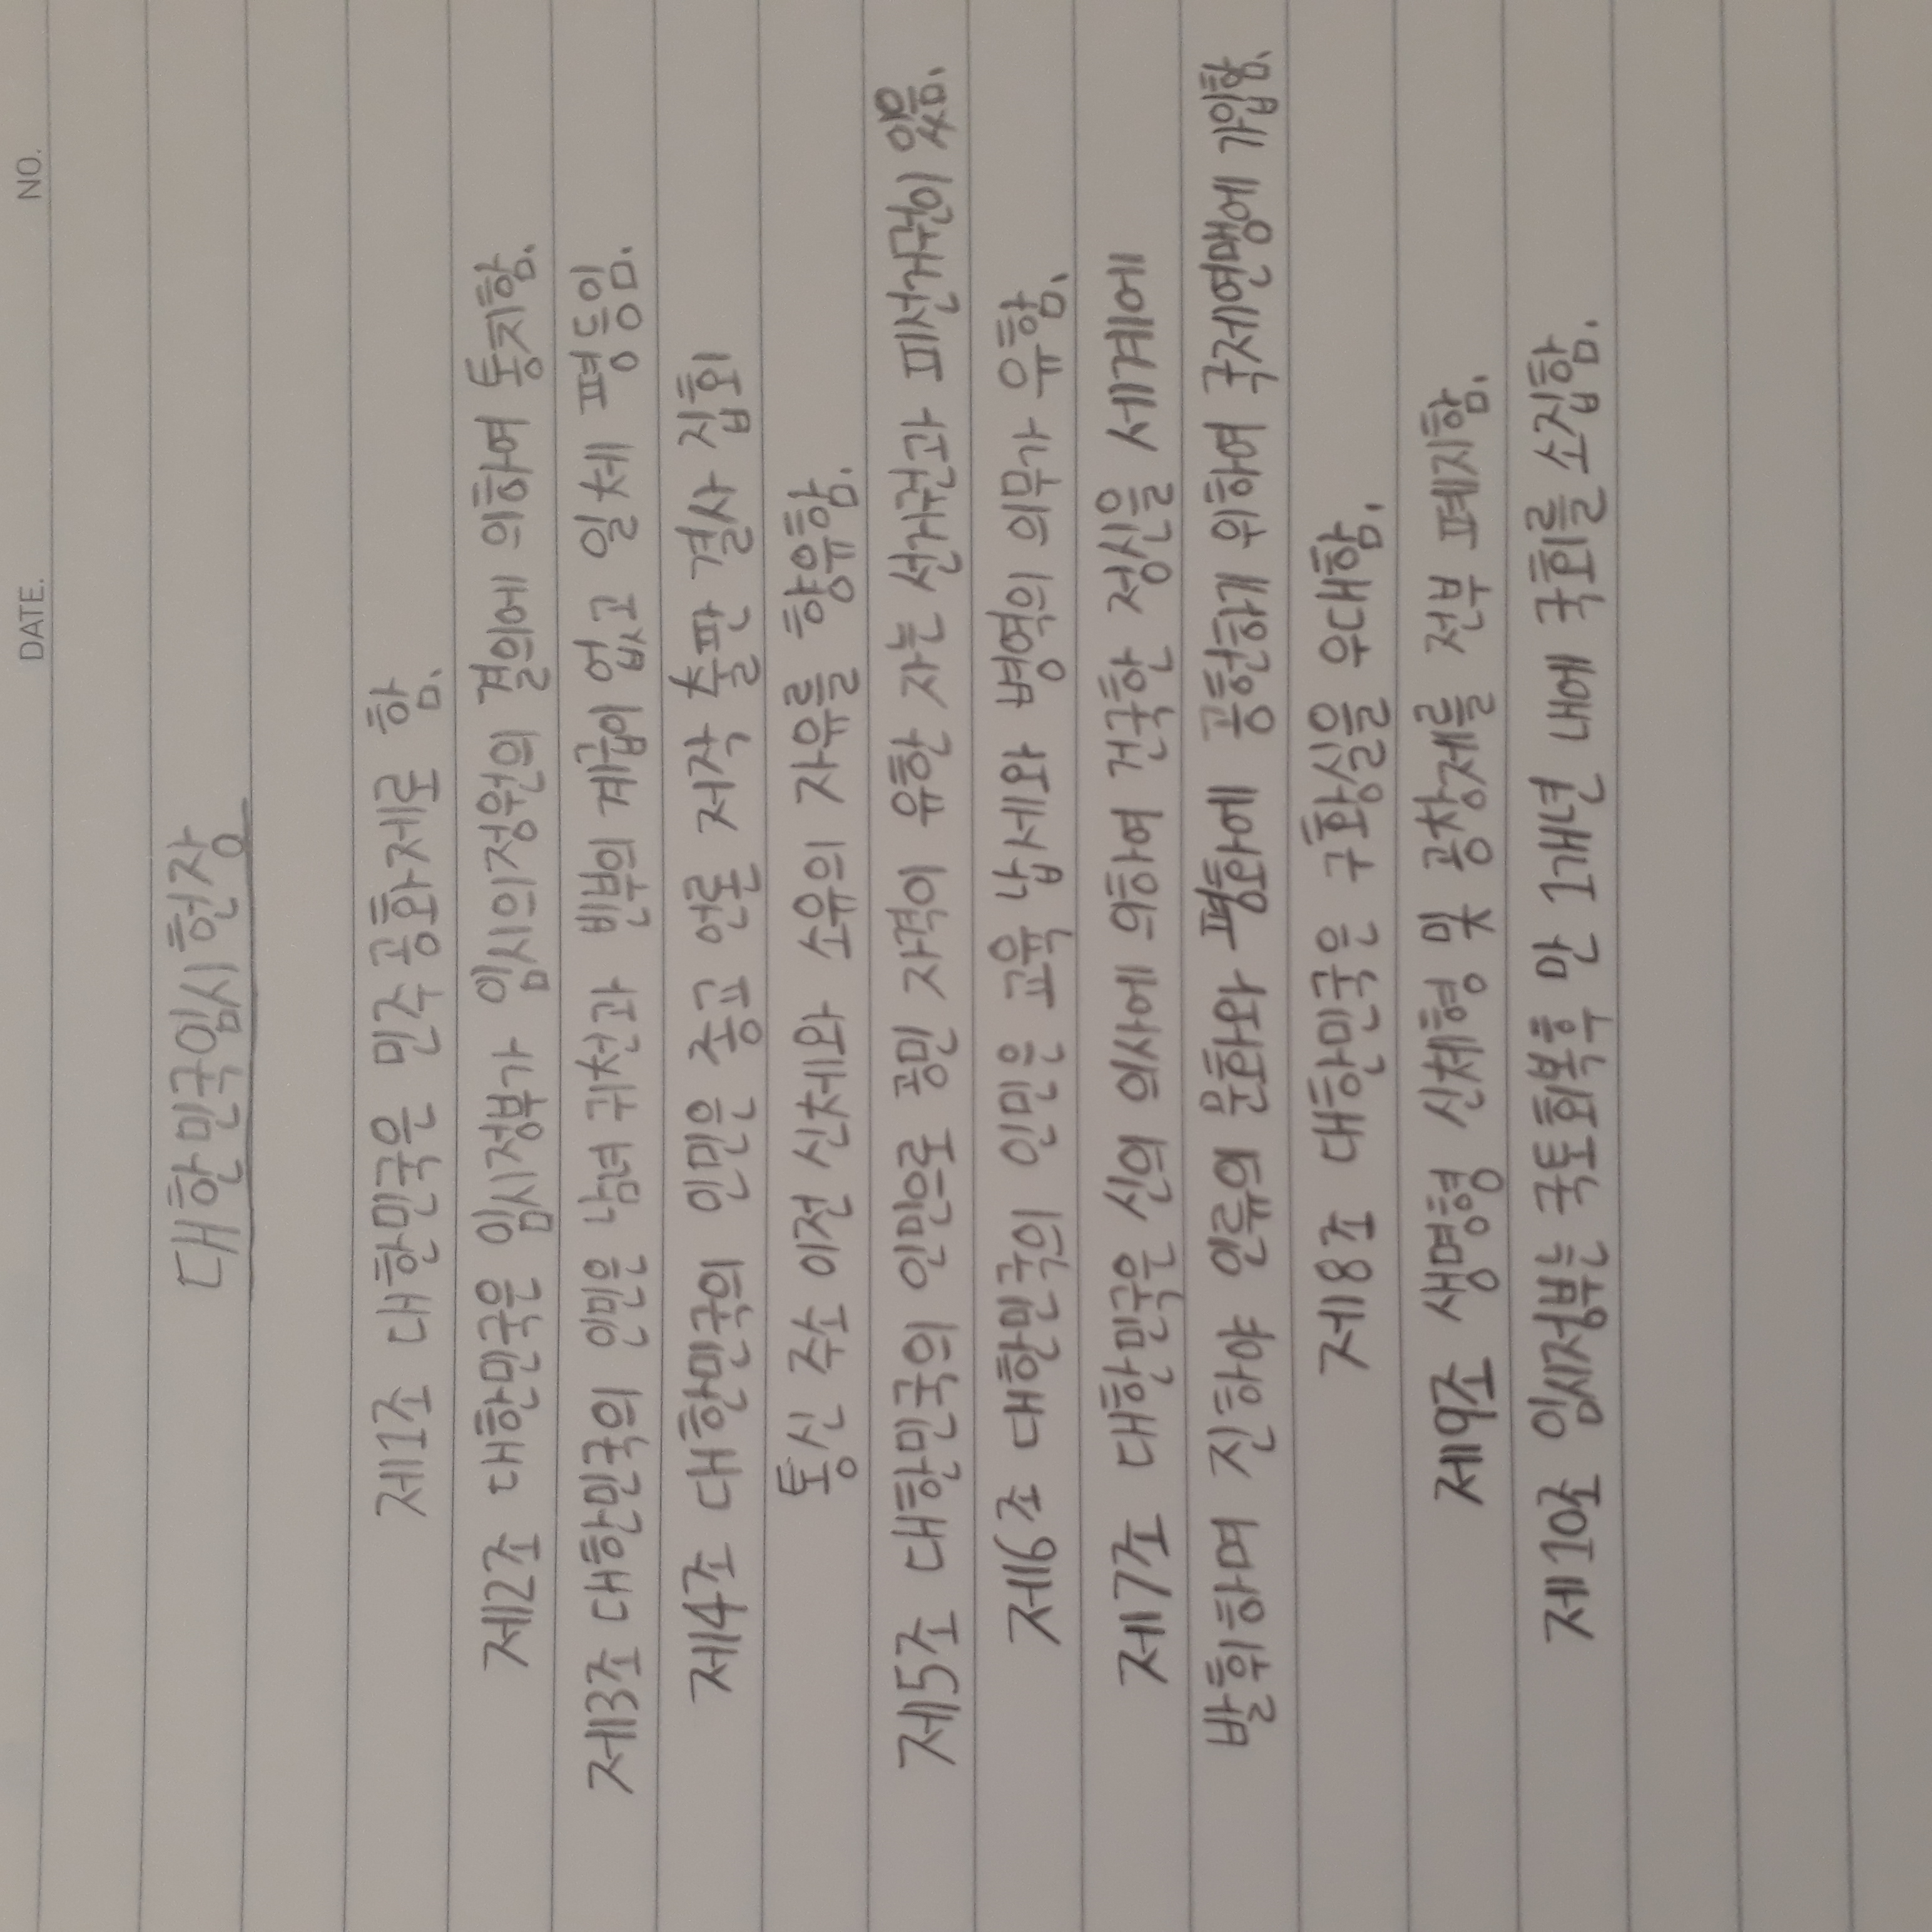 DATE. NO.
대한민국임시헌장
제1조 대한민국은 민주공화제로 함.
제2조 대한민국은 임시정부가 임시의정원의 결의에 의하여 통치함.
제3조 대한민국의 인민은 남녀 귀천과 빈부의 계급이 없고 일체 평등임.
제4조 대한민국의 인민은 종교 언론 저작 출판 결사 집회
통신 주소 이전 신체와 소유의 자유를 향유함.
제5조 대한민국의 인민으로 공민 자격이 유한 자는 선거권과 피선거권이 있음.
제6조 대한민국의 인민은 교육 납세와 병역의 의무가 유함.
제7조 대한민국은 신의 의사에 의하여 건국한 정신을 세계에
발휘하며 진하야 인류의 문화와 평화에 공헌하기 위하여 국제연맹에 가입함.
제8조 대한민국은 구황실을 우대함.
제9조 생명형 신체형 및 공창제를 전부 폐지함.
제10조 임시정부는 국토회복후 만 1개년 내에 국회를 소집함.